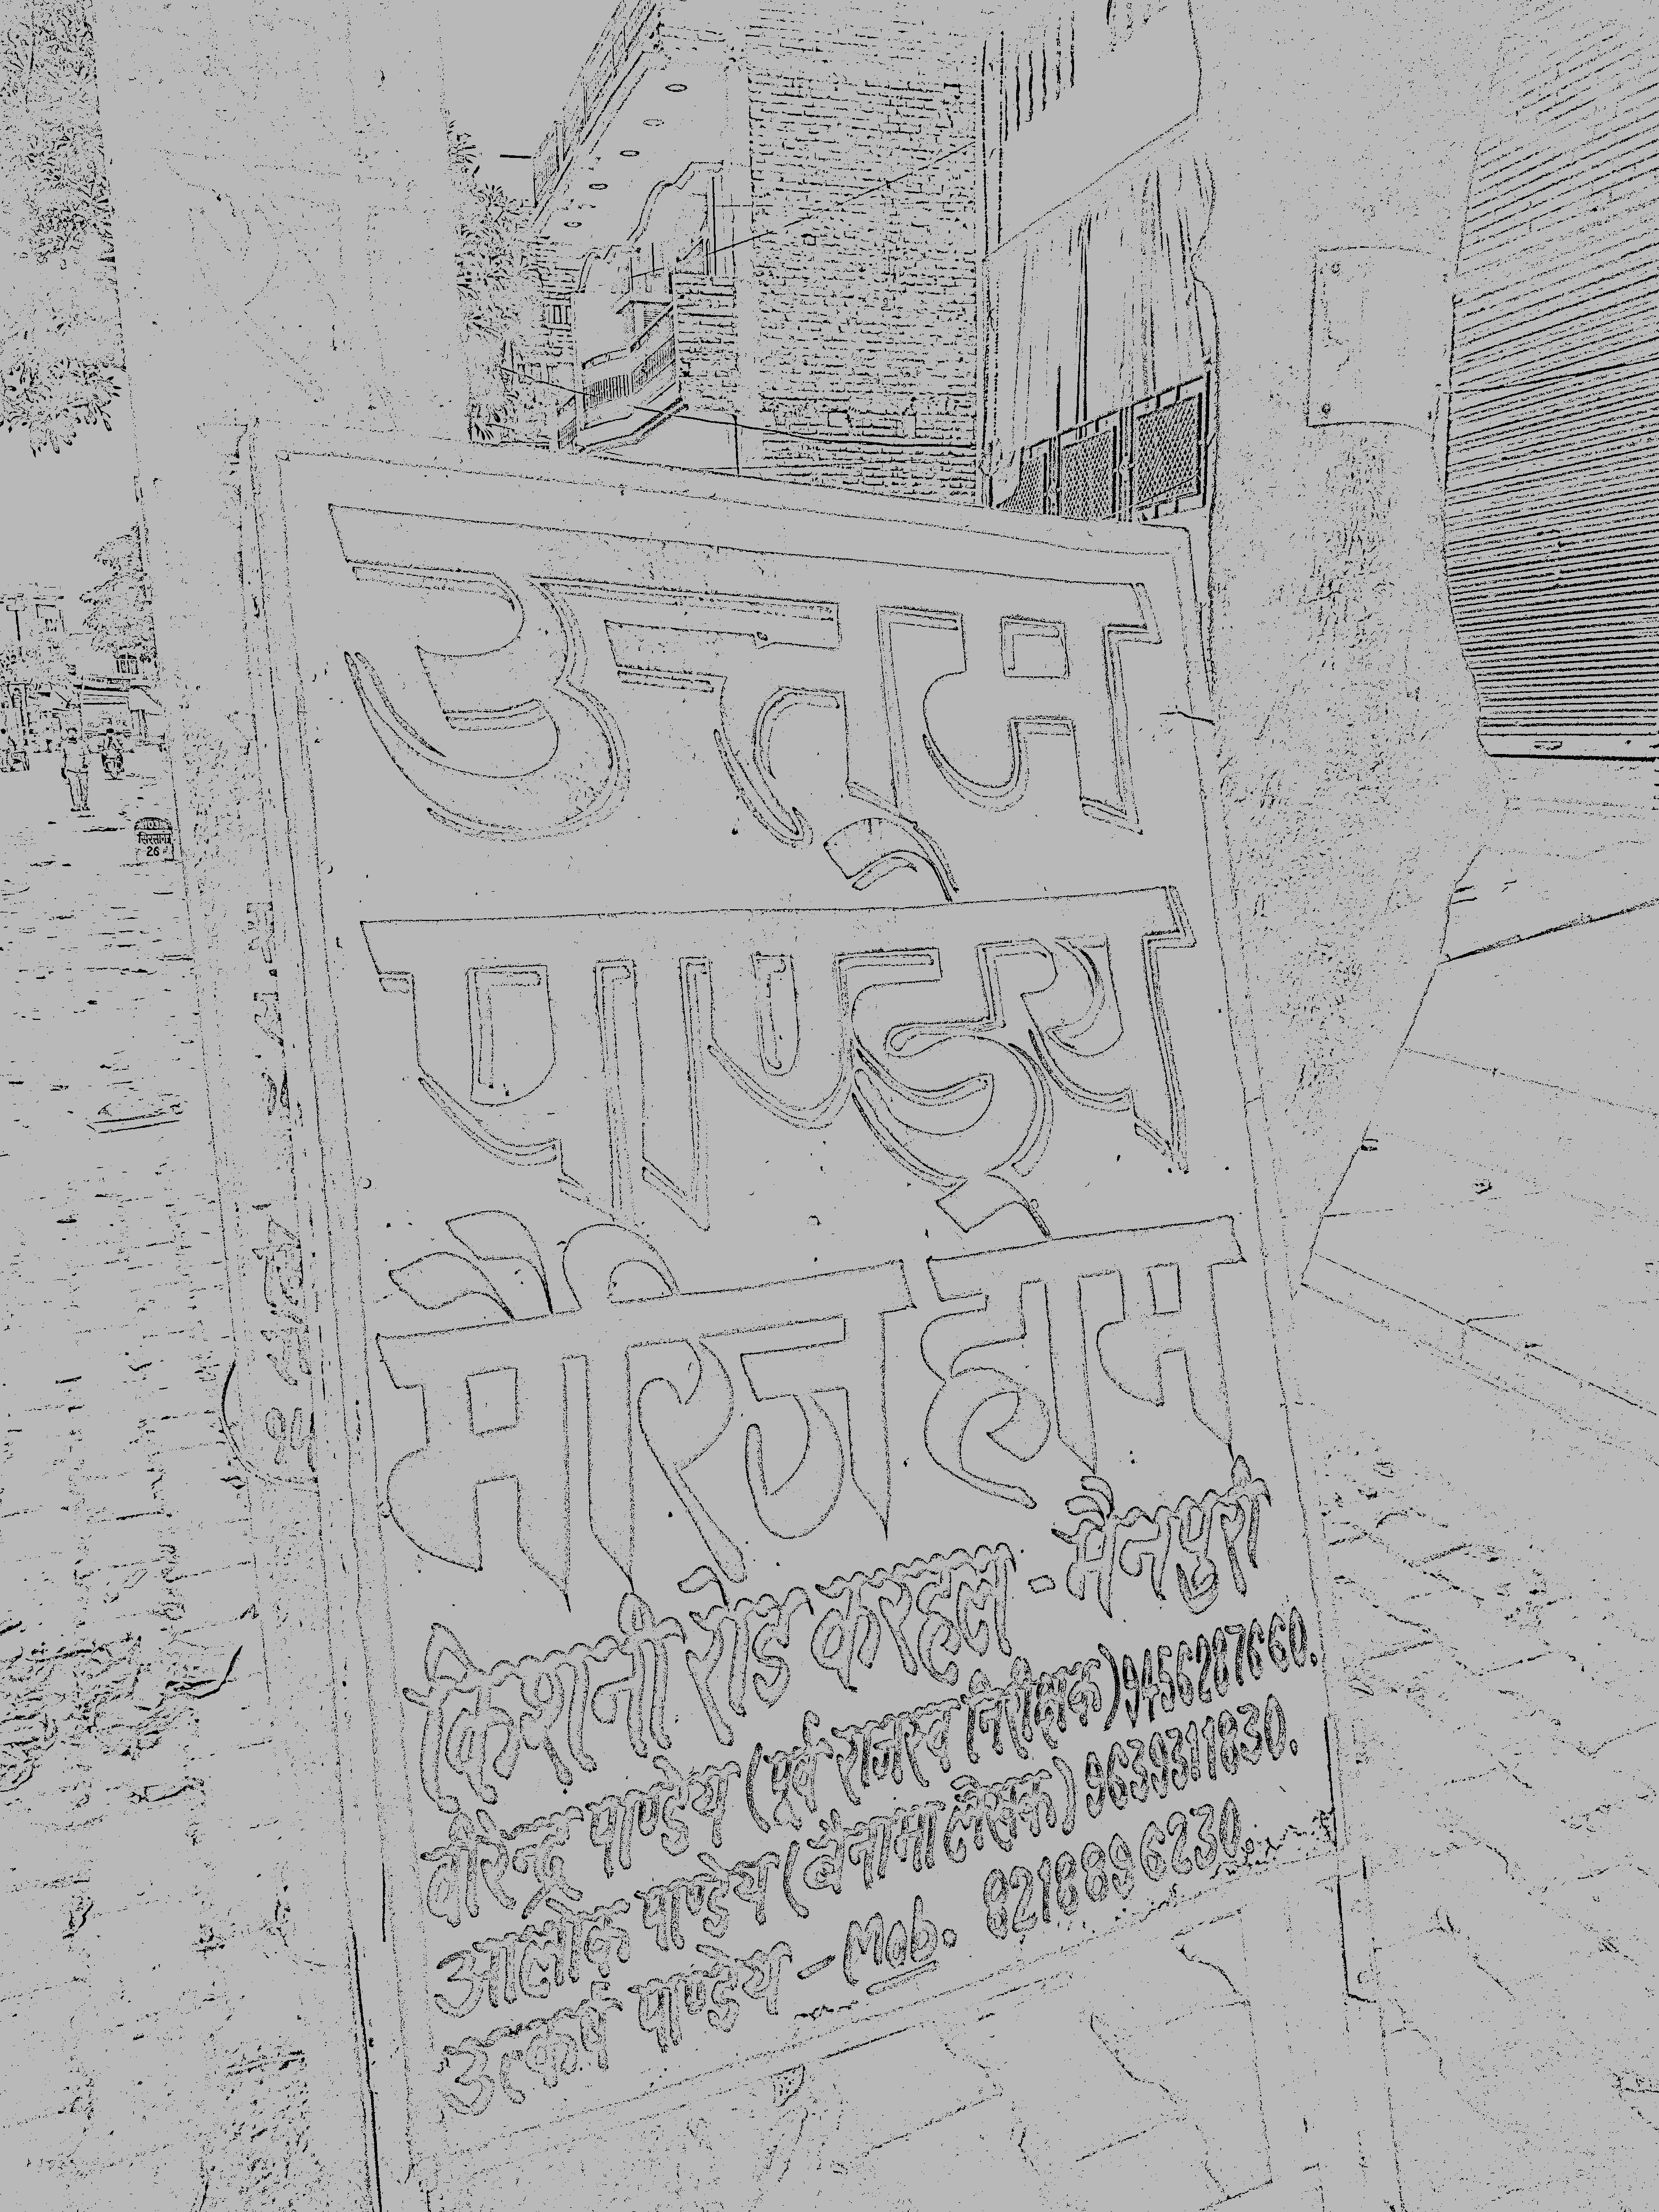 उत्तम्
पाण्ड्य
मैरिज होम
किशनी रोड करहल - मैनपुरी
वीरेन्द्र पाण्डेय (पूर्व राजस्व निरीक्षक) 9456287660.
आलोक पाण्डेय (बैनामा लेखक) 9639311830.
उत्कर्ष पाण्डेय - Mob. 8218896230.
सिरसागंज
26